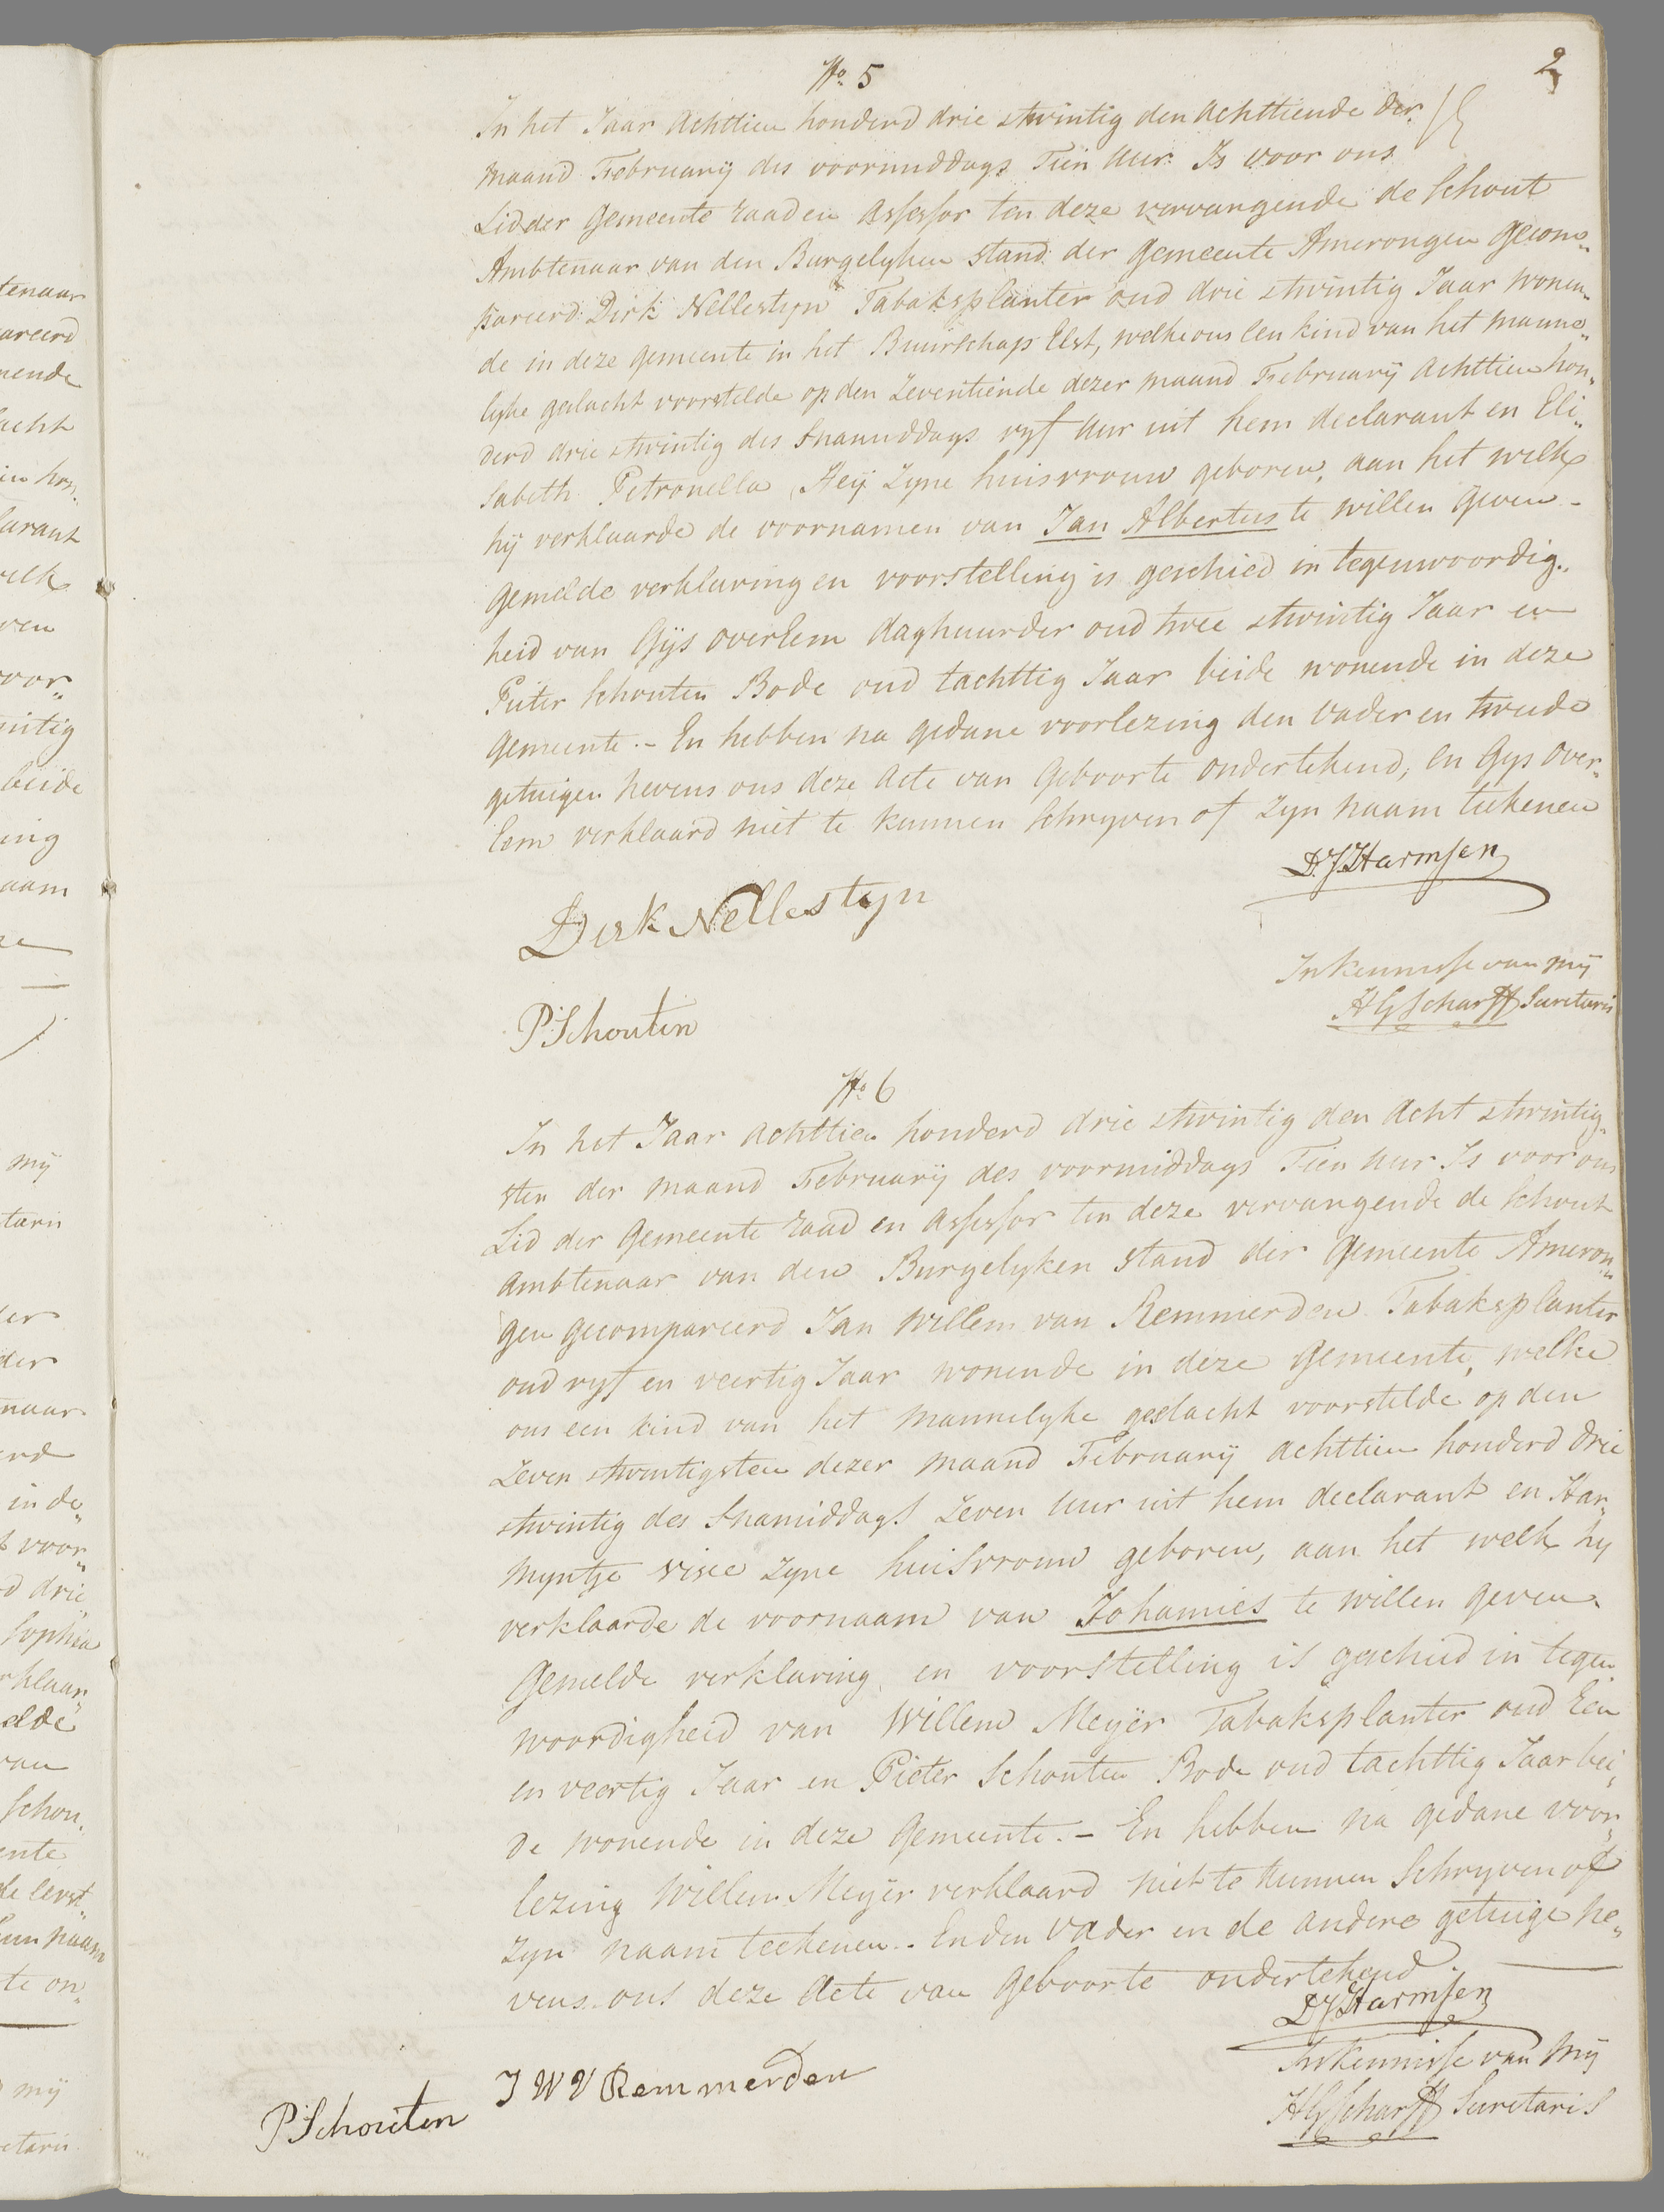 2
No. 5
In het Jaar Achttien honderd drie stwintig den Achttiende der
maand February des voormiddags Tien uur Is voor ons
Lid der Gemeente raad en Assessor ten deze vervangende de Schout
Ambtenaar van den Burgelyken Stand der Gemeente Amerongen Gecom„
pareerd Dirk Nellestyn Tabaksplanter oud drie stwintig Jaar wonen„
de in deze Gemeente in het Buurschap Elst, welke ons een kind van het manne„
lyke geslacht voorstelde op den Zeventiende dezer maand February Achttien hon„
derd drie stwintig des Snamiddags vyf uur uit hem declarant en Eli„
sabeth Petronella Heij Zyne huisvrouw geboren, aan het welk
hij verklaarde de voornamen van Jan Albertus te willen Geven -
Gemelde verklaring en voorstelling is geschied in tegenwoordig„
heid van Gijs overeem daghuurder oud twee stwintig Jaar en
Pieter Schouten Bode oud tachttig Jaar beide wonende in deze
Gemeente. - En hebben na gedane voorlezing den Vader en tweede
getuigen nevens ons deze Acte van Geboorte ondertekend, En Gys over„
eem verklaard niet te kunnen Schryven of Zyn naam tekenen
D.J. Harmsen
Dirk Nellestyn
In kennisse van mij
HG Scharff Secretaris
P Schouten
No. 6
In het Jaar Achttien honderd drie stwintig den Acht stwintig„
sten der maand February des voormiddags Tien uur Is voor ons
Lid der Gemeente raad en Assessor ten deze vervangende de Schout
Ambtenaar van den Burgelyken Stand der Gemeente Ameron„
gen gecompareerd Jan Willem van Remmerden Tabaksplanter
oud vyf en veertig Jaar wonende in deze Gemeente, welke
ons een kind van het mannelyke geslacht voorstelde op den
Zeven stwintigsten dezer maand February Achttien honderd drie
stwintig des Snamiddags Zeven uur uit hem declarant en Har„
myntje visee Zyne huisvrouw geboren, aan het welk hy
verklaarde de voornaam van Johannes te willen geven.
Gemelde verklaring en voorstelling is geschied in tegen„
woordigheid van Willem Meyer Tabaksplanter oud Een
en veertig Jaar en Pieter Schouten Bode oud tachttig Jaar bei„
de wonende in deze Gemeente. - En hebben na gedane voor„
lezing Willem Meyer verklaard niet te kunnen Schryven of
Zyn naam teekenen. En den Vader en de andere getuige ne„
vens ons deze Acte van Geboorte ondertekend.
DJ Harmsen
In kennisse van Mij
HG Scharff Secretaris
J W V Remmerden
P Schouten